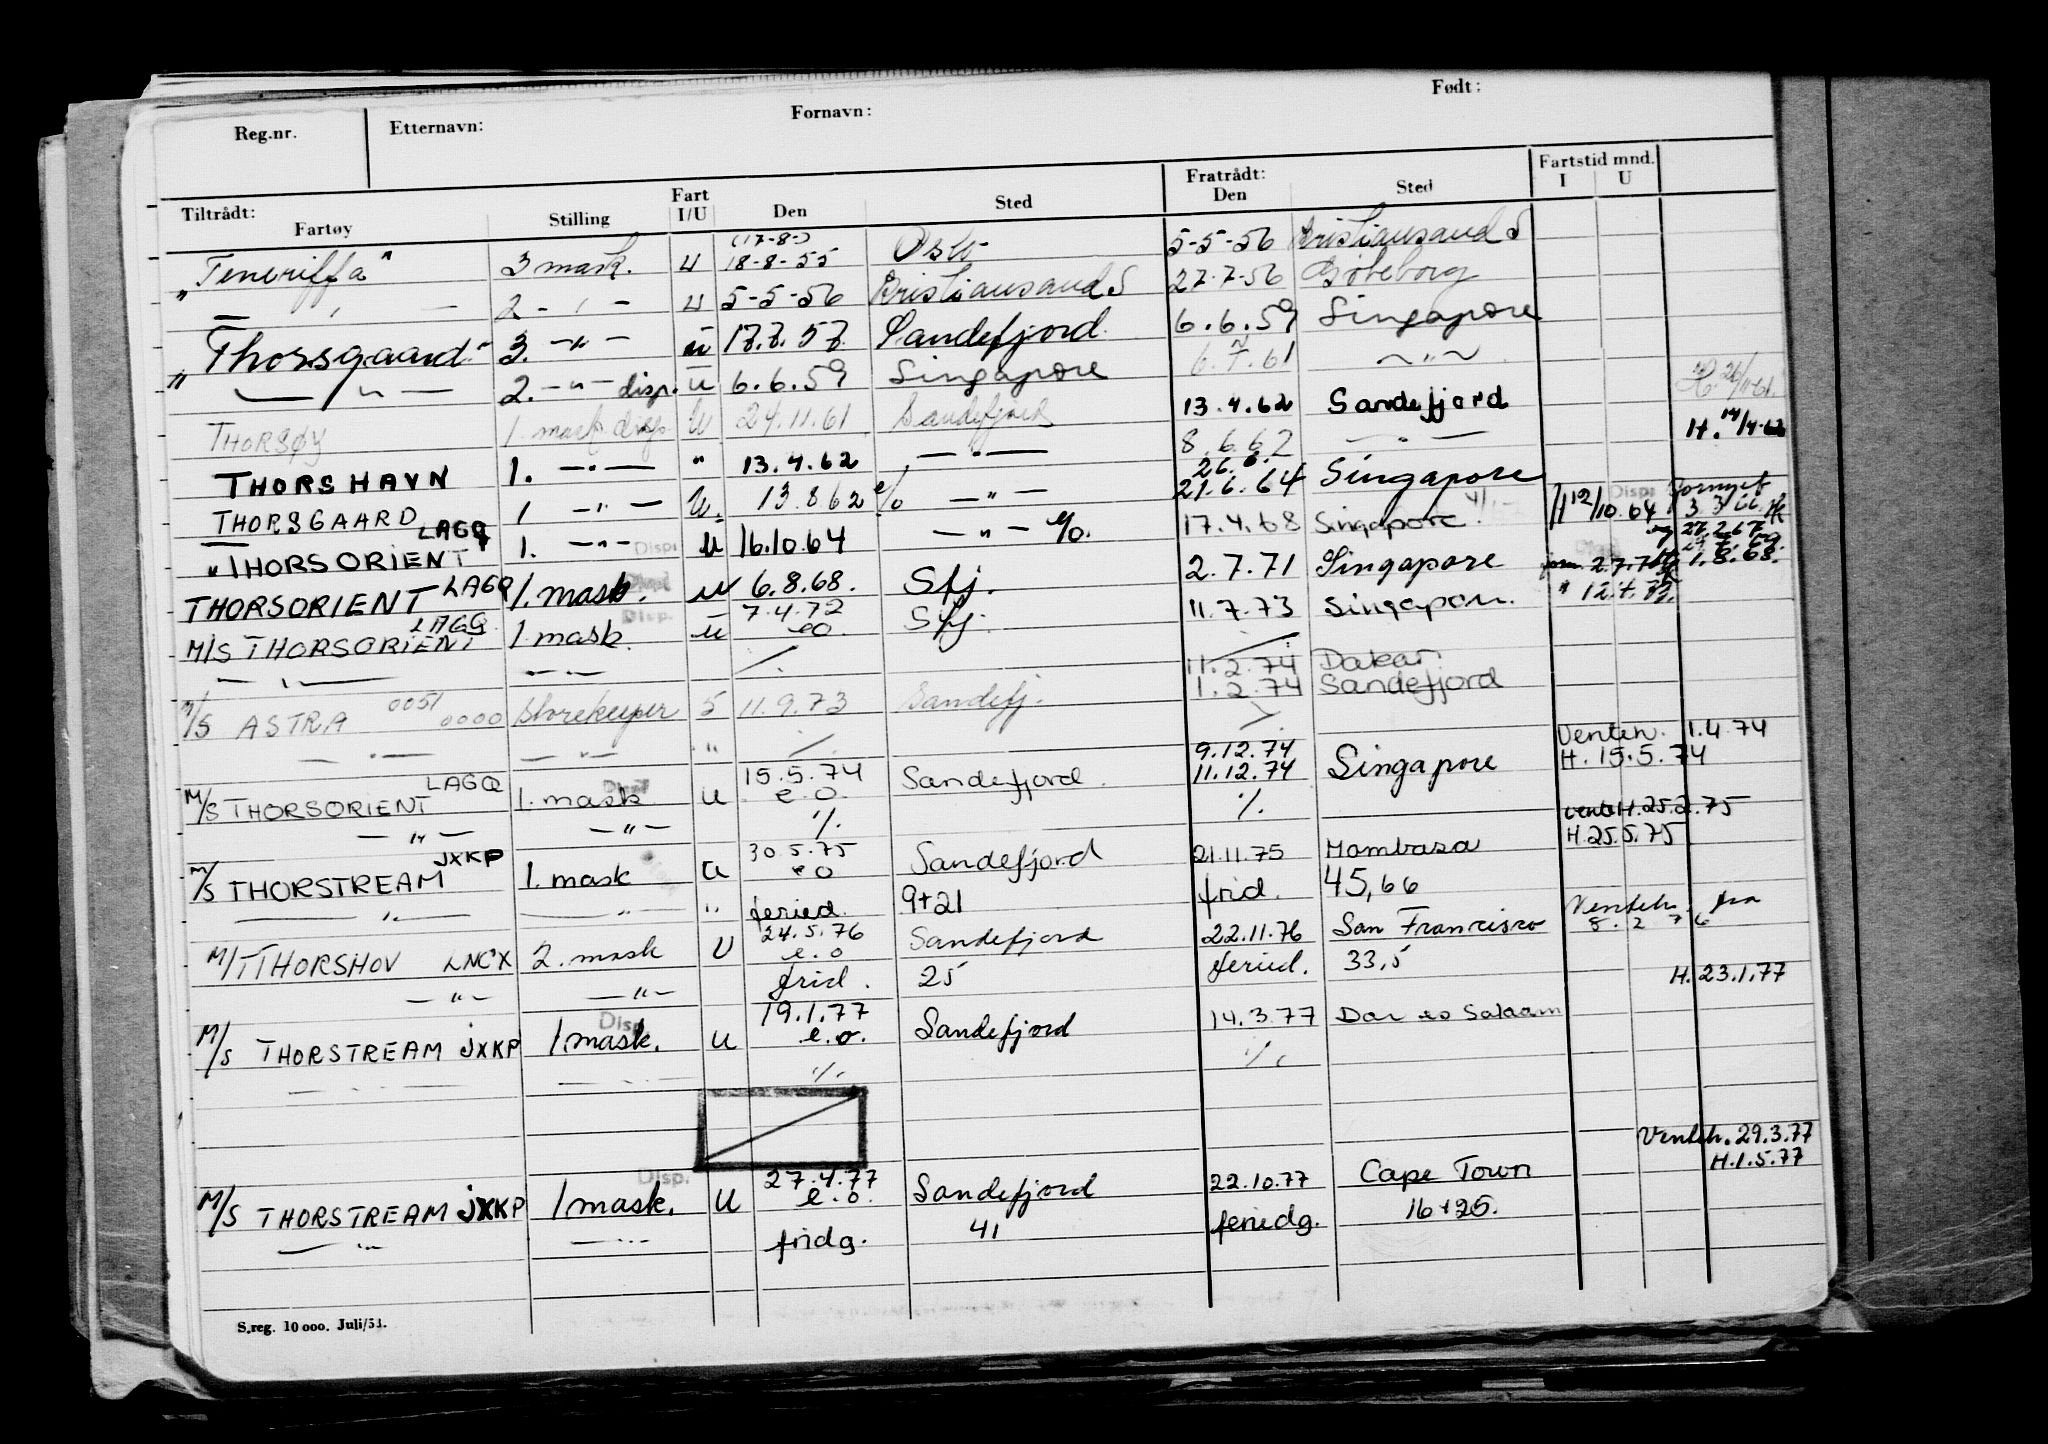 Reg.nr. Etternavn: Fornavn: Født:
Tiltrådt: Fratrådt: Fartstid mnd.
Fartøy Stilling Fart I/U Den Sted Den Sted I U
(17-8-)
"Teneriffa" 3 mask. u 18-8-55 Oslo 5-5-56 Kristiansand S
2 - " - u 5-5-56 Kristiansand S 27.7-56 Gøteborg
"Thorsgaard" 3. - " - u 17.7.57 Sandefjord. 6.6.59 Singapore
— " — 2. - " - disp. u 6.6.59 Singapore 6.7.61 ~ " ~
THORSØY 1. mask. disp. U 24.11.61 Sandefjord 13.4.62 Sandefjord H. 26/11-61.
THORSHAVN 1. — " — " 13.4.62 — " — 8.6.62 — " — H. 14/4-62
THORSGAARD 1 — " — U. 13.8.62 e/o — " — 26.6. 21.6.64 Singapore
"THORSORIENT LAGQ 1. — " — Disp. u 16.10.64 — " — e/o. 17.4.68 Singapore. 12/10.64 Disp. Fornyet 3.3.66
27.2.67
THORSORIENT LAGQ 1. mask. u 6.8.68. Sfj. 2.7.71 Singapore 1.8.68.
M/S THORSORIENT LAGQ 1. mask. Disp. u 7.4.72 eo. Sfj. 11.7.73 Singapore. " 12.4.72.
— " — — " — ./. ./.
M/S ASTRA 0051 0000 storekeeper 5 11.9.73 Sandefj. 11.2.74 Dakar.
1.2.74 Sandefjord
— " — — " — " ./. ./.
M/S THORSORIENT LAGQ 1. mask Disp. u 15.5.74 e.o. Sandefjord. 9.12.74 11.12.74 Singapore Venteh. 1.4.74
H. 15.5.74
— " — — " — ./. ./.
M/S THORSTREAM JXKP 1. mask u 30.5.75 eo Sandefjord 21.11.75 Mombasa H.25.2.75
H.25.5.75
— " — — " — " feried. 9+21 frid. 45,66
M/T THORSHOV LNCX 2. mask U 24.5.76 e.o Sandefjord 22.11.76 San Francisco Venteh. fra
8.2 76
— " — — " — frid. 25 feried. 33,5
M/S THORSTREAM JXKP 1 mask. Disp. u 19.1.77 e.o. Sandefjord 14.3.77 Dar es Salaam H. 23.1.77
— " — — " — ./. ./.
Venteh. 29.3.77
H.1.5.77
M/S THORSTREAM JXKP 1 mask. Disp. U 27.4.77 e.o. Sandefjord 22.10.77 Cape Town
— " — — " — fridg. 41 feriedg. 16+25.
S.reg. 10 000. Juli/53.